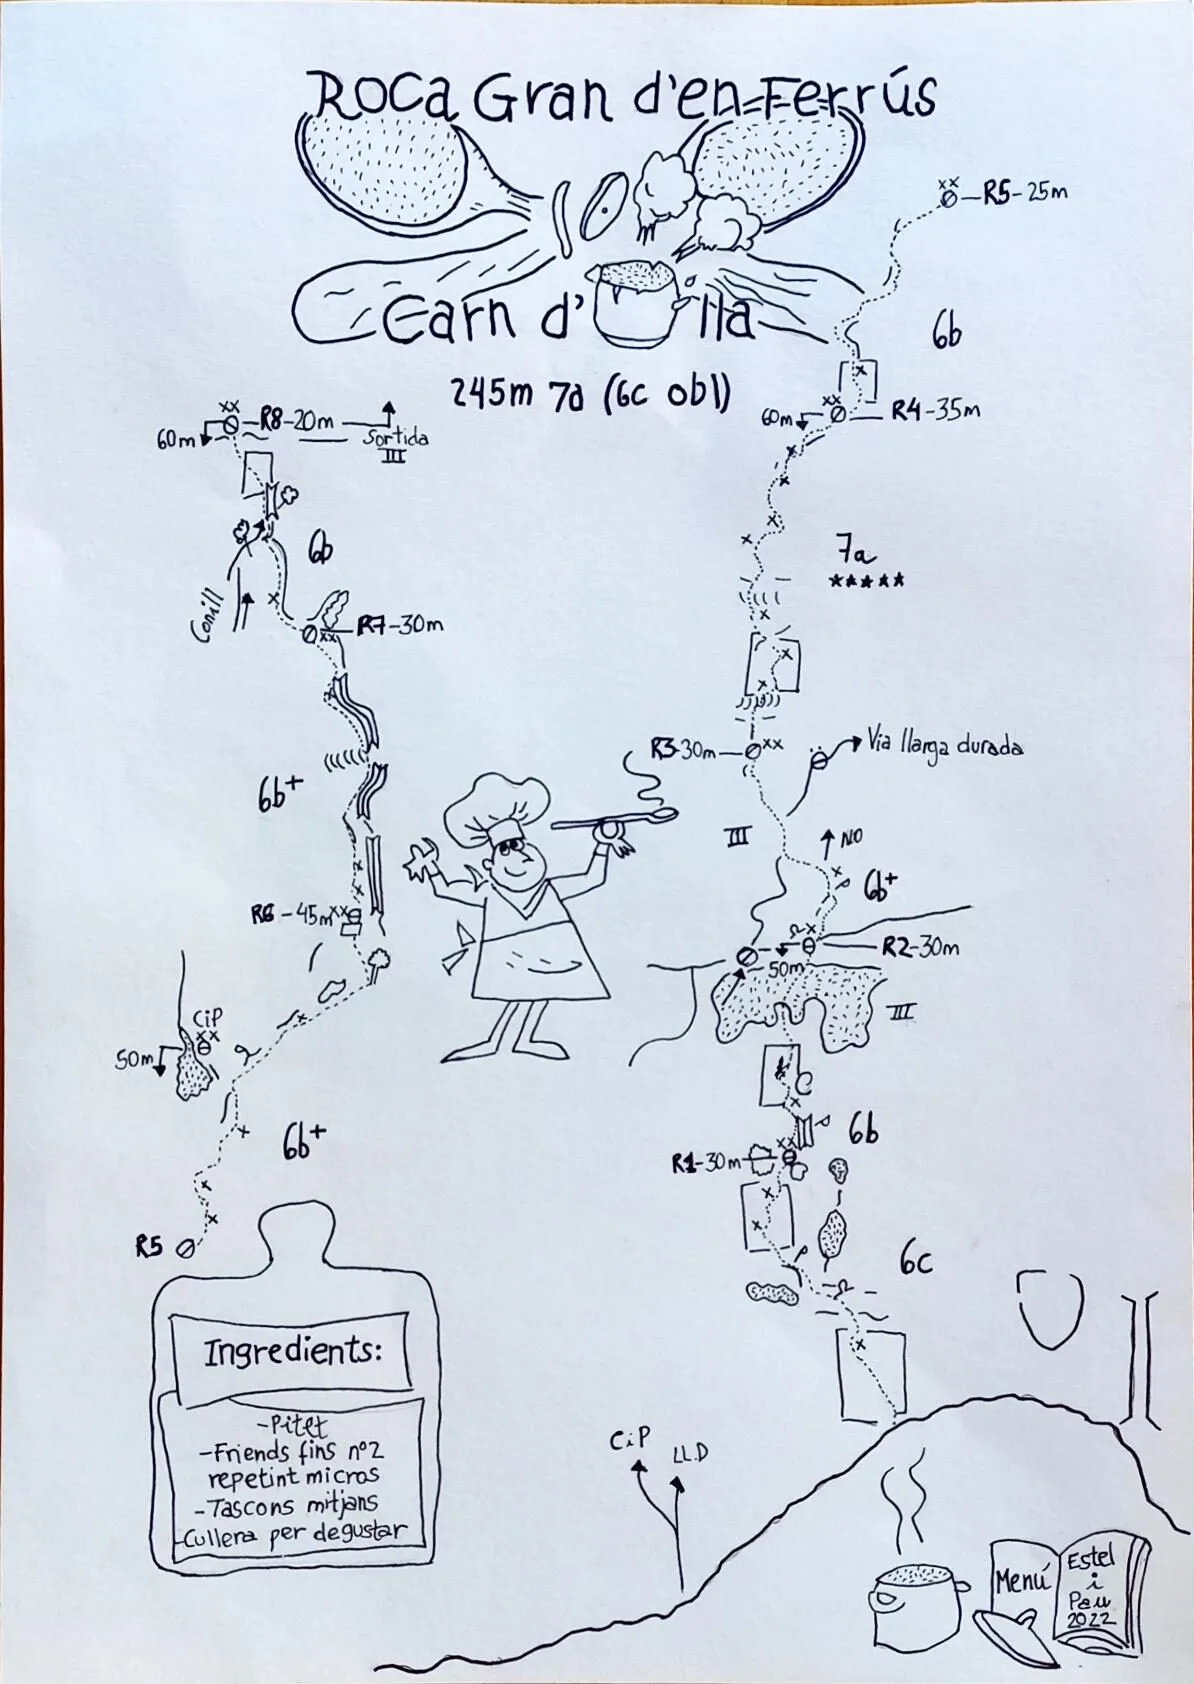 Roca Gran d'en Ferrús
Carn d'Olla
245m 7a (6c obl)
xx
R5-25m
6b
xx
60m
R4-35m
7a
★★★★★
R3-30m
xx
Via llarga durada
III
NO
6b+
R2-30m
50m
III
6b
xx
R1-30m
6c
xx
R8-20m
60m
Sortida
III
6b
Conill
xx
R7-30m
6b+
R6-45m
xx
CiP
xx
50m
6b+
R5
Ingredients:
-Pitet
-Friends fins nº2
repetint micros
-Tascons mitjans
-Cullera per degustar
CiP
LL.D
Menú
Estel
i
Pau
2022